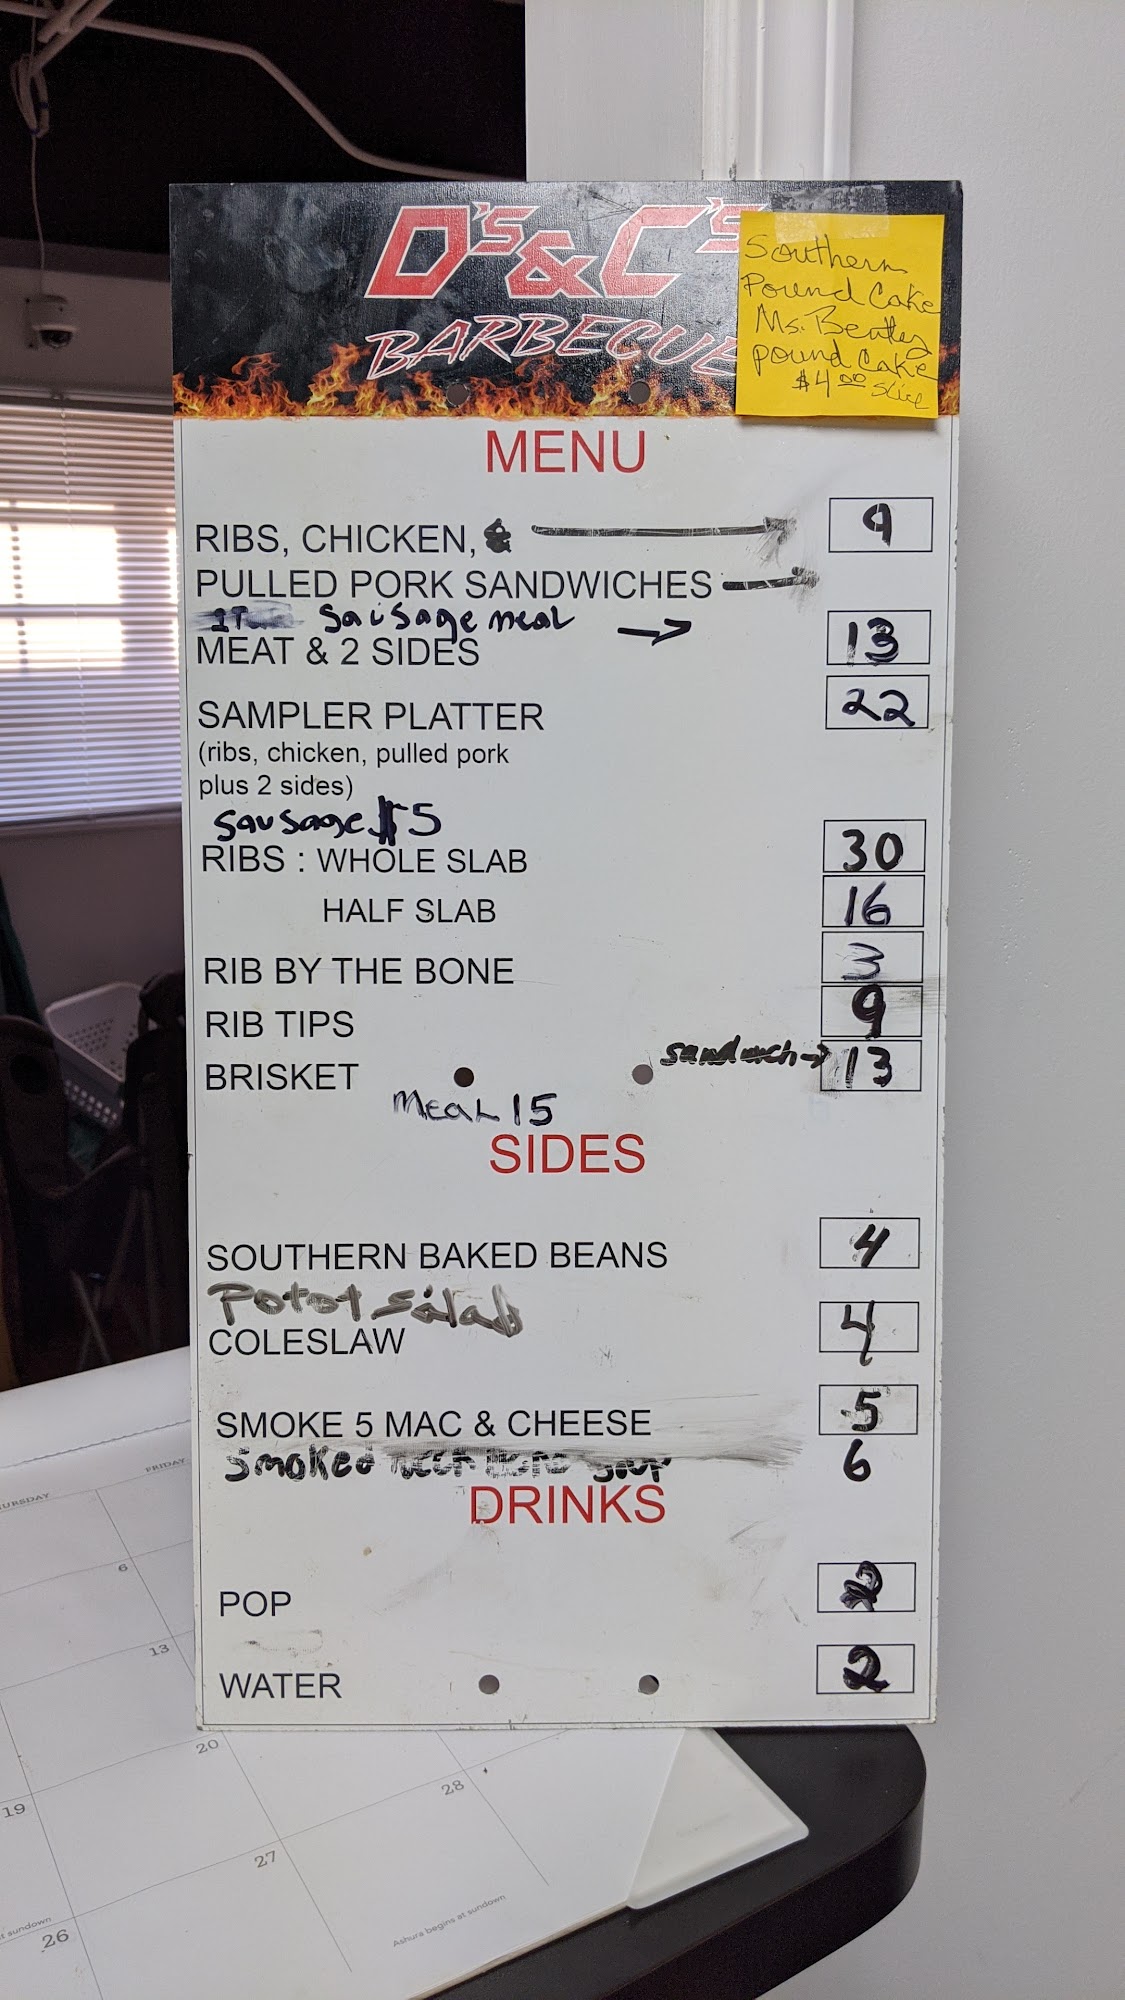 D'S & C'S
BARBECUE
Southern
Pound Cake
Ms. Bentley
pound Cake
$4.00 Slice
MENU
RIBS, CHICKEN, & 9
PULLED PORK SANDWICHES
Sausage meal
MEAT & 2 SIDES 13
SAMPLER PLATTER 22
(ribs, chicken, pulled pork
plus 2 sides)
Sausage $5
RIBS : WHOLE SLAB 30
HALF SLAB 16
RIB BY THE BONE 3
RIB TIPS 9
BRISKET sandwich 13
Meal 15
SIDES
SOUTHERN BAKED BEANS 4
Potot Salad
COLESLAW 4
SMOKE 5 MAC & CHEESE 5
Smoked 6
DRINKS
POP 2
WATER 2
THURSDAY
FRIDAY
6
13
20
19
28
27
26
at sundown
Ashura begins at sundown